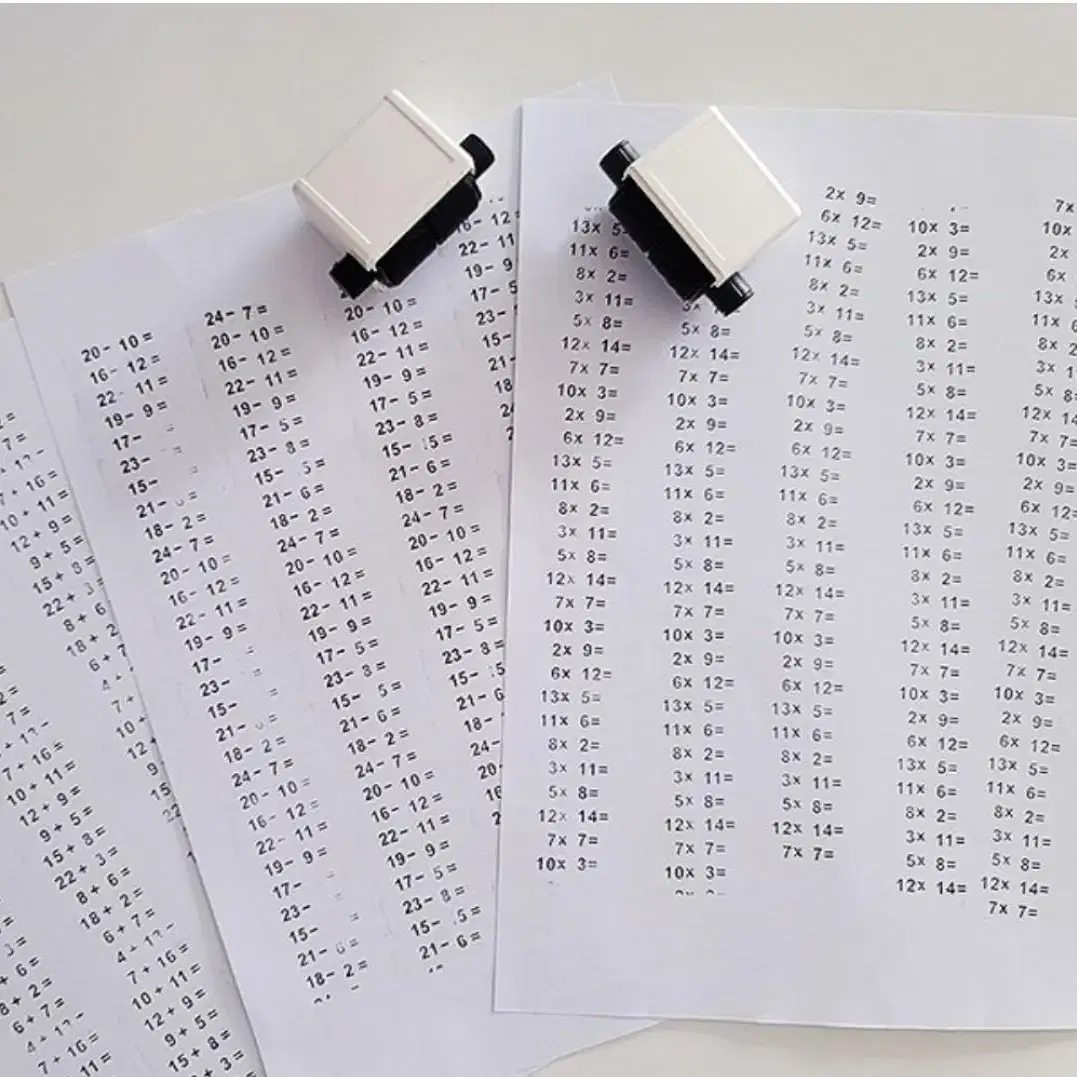 7 + 16 =
10 + 11 =
12 + 9 =
9 + 5 =
15 + 8 =
22 + 3
8 + 6
18 + 2
6 + 7
7 + 16 =
10 + 11 =
12 + 9 =
9 + 5 =
15 + 8 =
22 + 3 =
8 + 6 =
18 + 2 =
6 + 7 =
7 + 16 =
10 + 11 =
12 + 9 =
9 + 5 =
15 + 8 =
+ 3 =
+ 6 =
8 + 2 =
6 + 7 =
7 + 16 =
11 =
20- 10 =
16- 12 =
22- 11 =
19- 9 =
17-
23-
15-
21- 6 =
18- 2 =
24- 7 =
20- 10 =
16- 12 =
22- 11 =
19- 9 =
17- =
23-
15-
21- =
18- 2 =
24- 7 =
20- 10 =
16- 12 =
22- 11 =
19- 9 =
17-
23-
15-
21- 6 =
18- 2 =
24- 7 =
20- 10 =
16- 12 =
22- 11 =
19- 9 =
17- 5 =
23- 8 =
15- 5 =
21- 6 =
18- 2 =
24- 7 =
20- 10 =
16- 12 =
22- 11 =
19- 9 =
17- 5 =
23- 8 =
15- 5 =
21- 6 =
18- 2 =
24- 7 =
20- 10 =
16- 12 =
22- 11 =
19- 9 =
17- 5 =
23- 8 =
15- 5 =
21- 6 =
20- 10 =
16- 12 =
22- 11 =
19- 9 =
17- 5 =
23- 8 =
15- 5 =
21- 6 =
18- 2 =
24- 7 =
20- 10 =
16- 12 =
22- 11 =
19- 9 =
17- 5 =
23- 8 =
15- 5
21- 6
18-
24-
20-
16
16- 12
22- 11
19- 9
17- 5
23-
15-
21-
18
13x 5
11x 6=
8x 2=
3x 11=
5x 8=
12x 14=
7x 7=
10x 3=
2x 9=
6x 12=
13x 5=
11x 6=
8x 2=
3x 11=
5x 8=
12x 14=
7x 7=
10x 3=
2x 9=
6x 12=
13x 5=
11x 6=
8x 2=
3x 11=
5x 8=
12x 14=
7x 7=
10x 3=
5x 8=
12x 14=
7x 7=
10x 3=
2x 9=
6x 12=
13x 5=
11x 6=
8x 2=
3x 11=
5x 8=
12x 14=
7x 7=
10x 3=
2x 9=
6x 12=
13x 5=
11x 6=
8x 2=
3x 11=
5x 8=
12x 14=
7x 7=
10x 3=
2x 9=
6x 12=
13x 5=
11x 6=
8x 2=
3x 11=
5x 8=
12x 14=
7x 7=
10x 3=
2x 9=
6x 12=
13x 5=
11x 6=
8x 2=
3x 11=
5x 8=
12x 14=
7x 7=
10x 3=
2x 9=
6x 12=
13x 5=
11x 6=
8x 2=
3x 11=
5x 8=
12x 14=
7x 7=
10x 3=
2x 9=
6x 12=
13x 5=
11x 6=
8x 2=
3x 11=
5x 8=
12x 14=
7x 7=
10x 3=
2x 9=
6x 12=
13x 5=
11x 6=
8x 2=
3x 11=
5x 8=
12x 14=
7x 7=
10x 3=
2x 9=
6x 12=
13x 5=
11x 6=
8x 2=
3x 11=
5x 8=
12x 14=
7x
10x
2x
6x
13x
11x 6
8x 2
3x 1
5x 8
12x 14
7x 7=
10x 3=
2x 9=
6x 12=
13x 5=
11x 6=
8x 2=
3x 11=
5x 8=
12x 14=
7x 7=
10x 3=
2x 9=
6x 12=
13x 5=
11x 6=
8x 2=
3x 11=
5x 8=
12x 14=
7x 7=